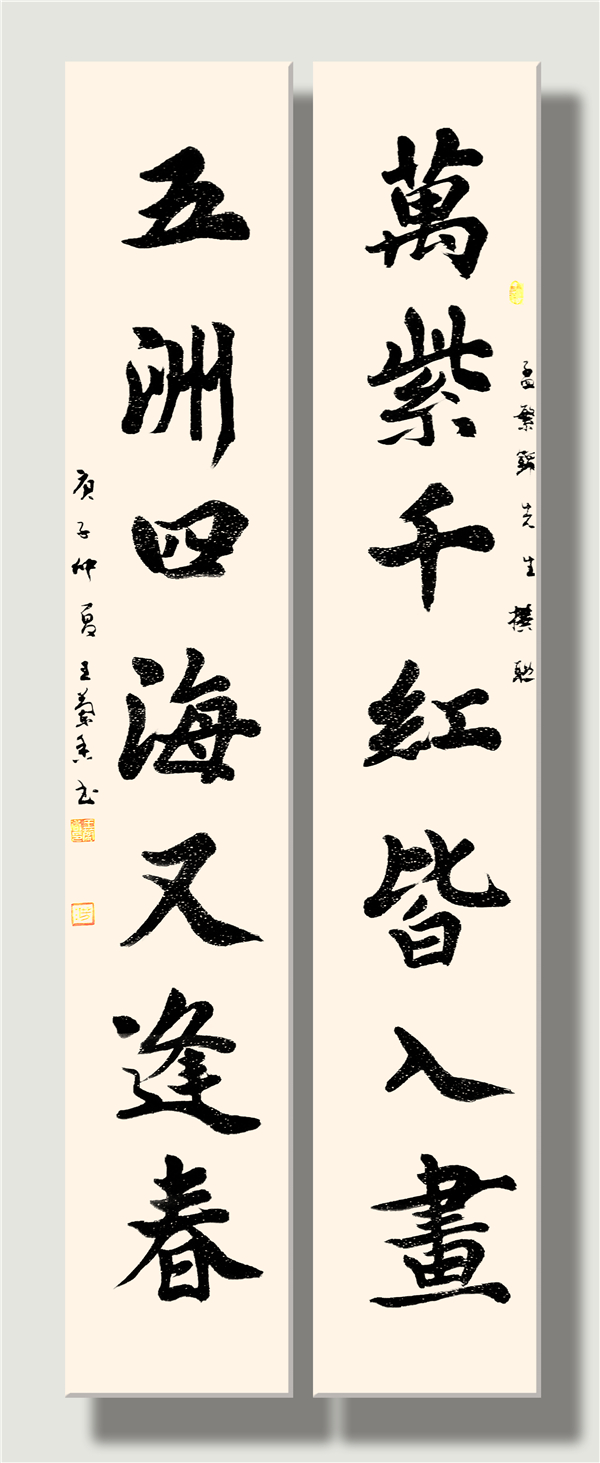 萬紫千紅皆入畫
孟繁錦先生撰聯
五洲四海又逢春
庚子仲夏王書